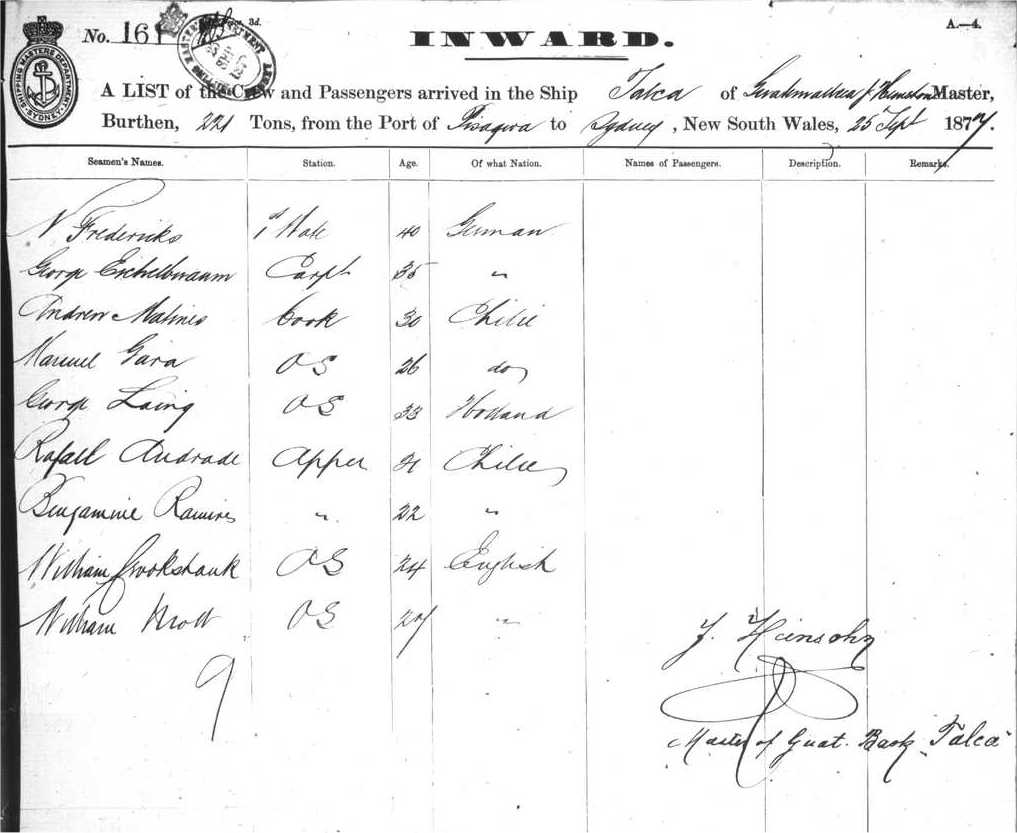 No. 161 3d. A.—4.
SHIPPING MASTERS DEPARTMENT SYDNEY
INWARD.
A LIST of the Crew and Passengers arrived in the Ship Talca of Master,
Burthen, 221 Tons, from the Port of Pisagua to Sydney, New South Wales, 25 Sept 1877.
Seamen's Names. Station. Age. Of what Nation. Names of Passengers. Description. Remarks.
N Fredericks 1st Mate 40 German
George Carpt 35 "
Andrew Matines Cook 30 Chilie
Manuel Gara OS 26 do
George Laing OS 33 Holland
Rafaell Andrade Apper 21 Chilie
Benjamine Ramires " 22 "
William Crookshank OS 24 English
William OS "
J. Heinsohn
9
Master of Guat. Bark Talca